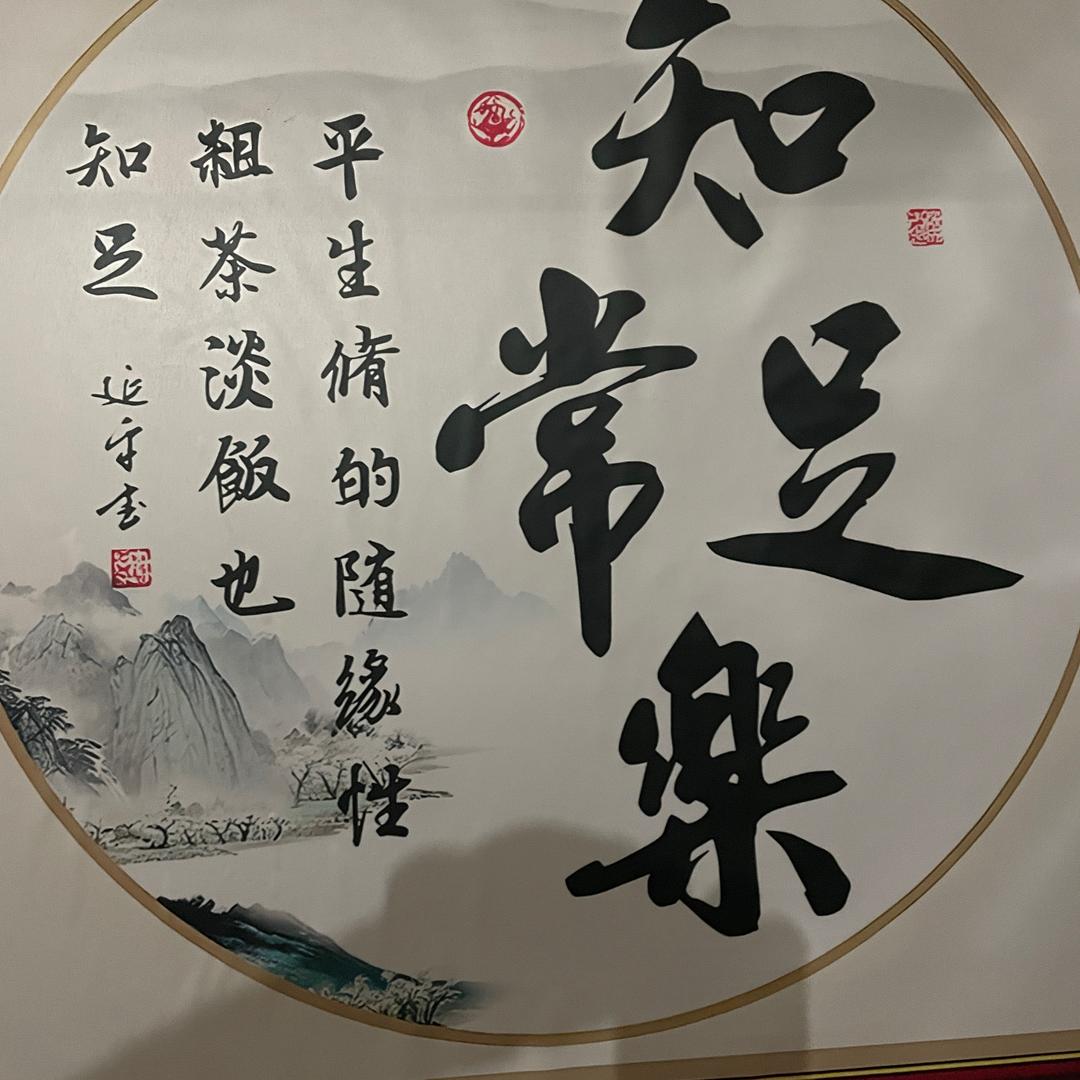 知足常樂
平生脩的随緣性
粗茶淡飯也
知足